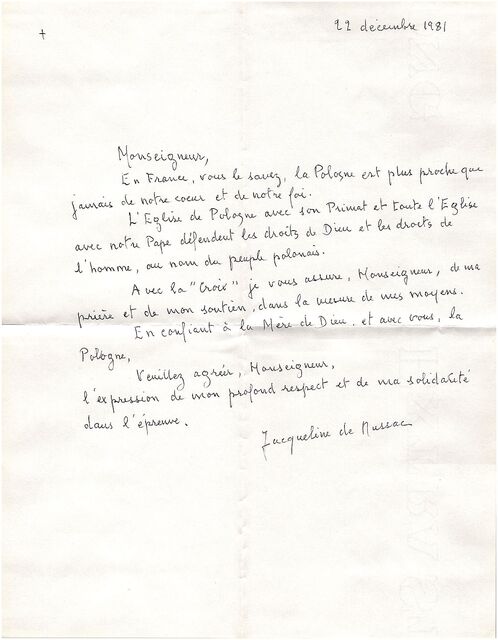 +
22 décembre 1981
Monseigneur,
En France, vous le savez, la Pologne est plus proche que
jamais de notre coeur et de notre foi.
L'Eglise de Pologne avec son Primat et toute l'Eglise
avec notre Pape défendent les droits de Dieu et les droits de
l'homme, au nom du peuple polonais.
Avec la "Croix" je vous assure, Monseigneur, de ma
prière et de mon soutien, dans la mesure de mes moyens.
En confiant à la Mère de Dieu, et avec vous, la
Pologne,
Veuillez agréer, Monseigneur,
l'expression de mon profond respect et de ma solidarité
dans l'épreuve.
Jacqueline de Nussac